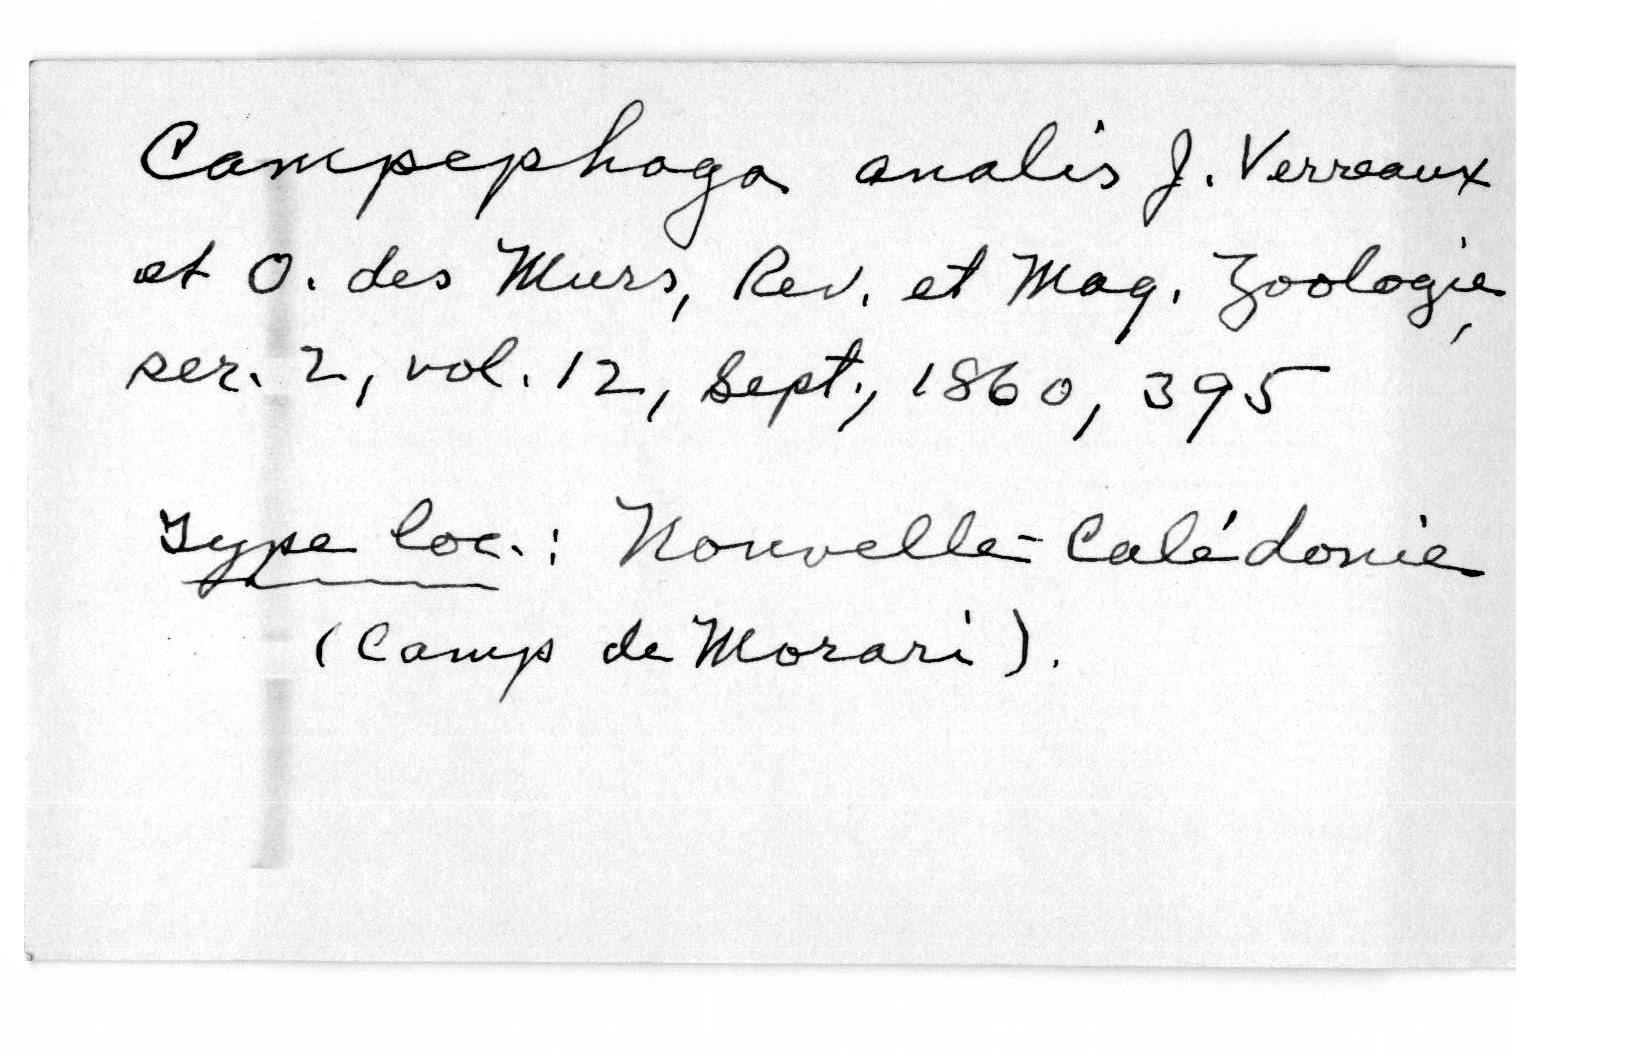 Campephaga analis J. Verreaux
et O. des Murs, Rev. et Mag. Zoologie,
ser. 2, vol. 12, Sept., 1860, 395
Type loc.: Nouvelle-Calédonie
(Camp de Morari).